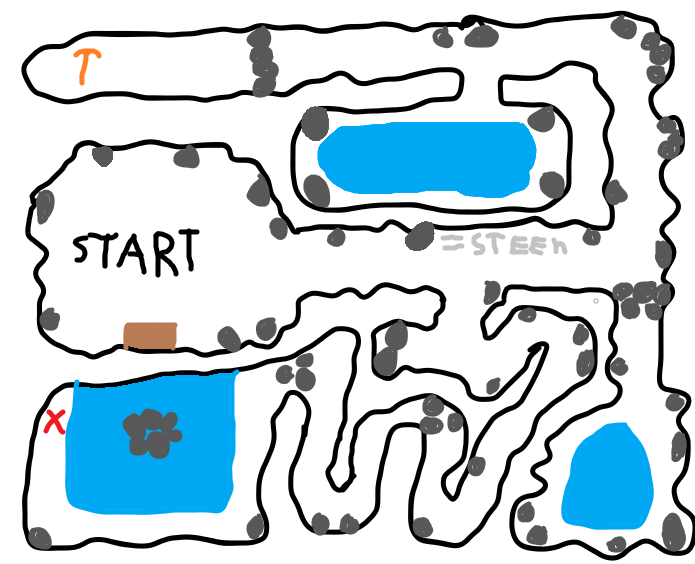 T
START
= STEEn
X